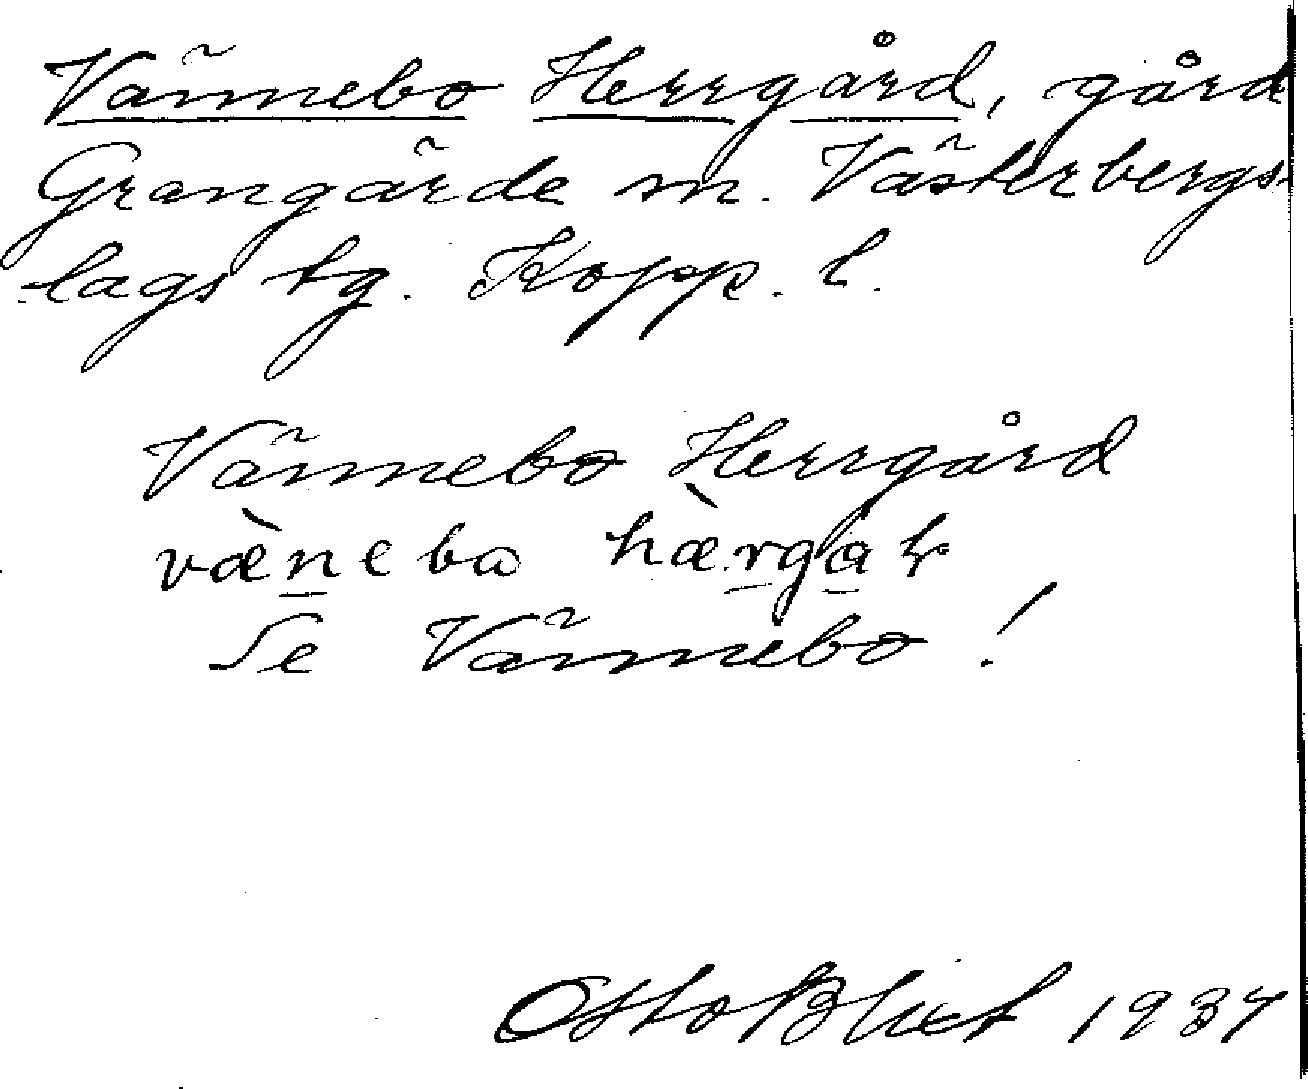 Vännebo Herrgård, gård
Grangärde sn. Västerbergs-
lags tg. Kopp. l.
Vännebo Herrgård
væ̀neba hæ̀rgaḷ
Se Vännebo!
Otto Blixt 1937